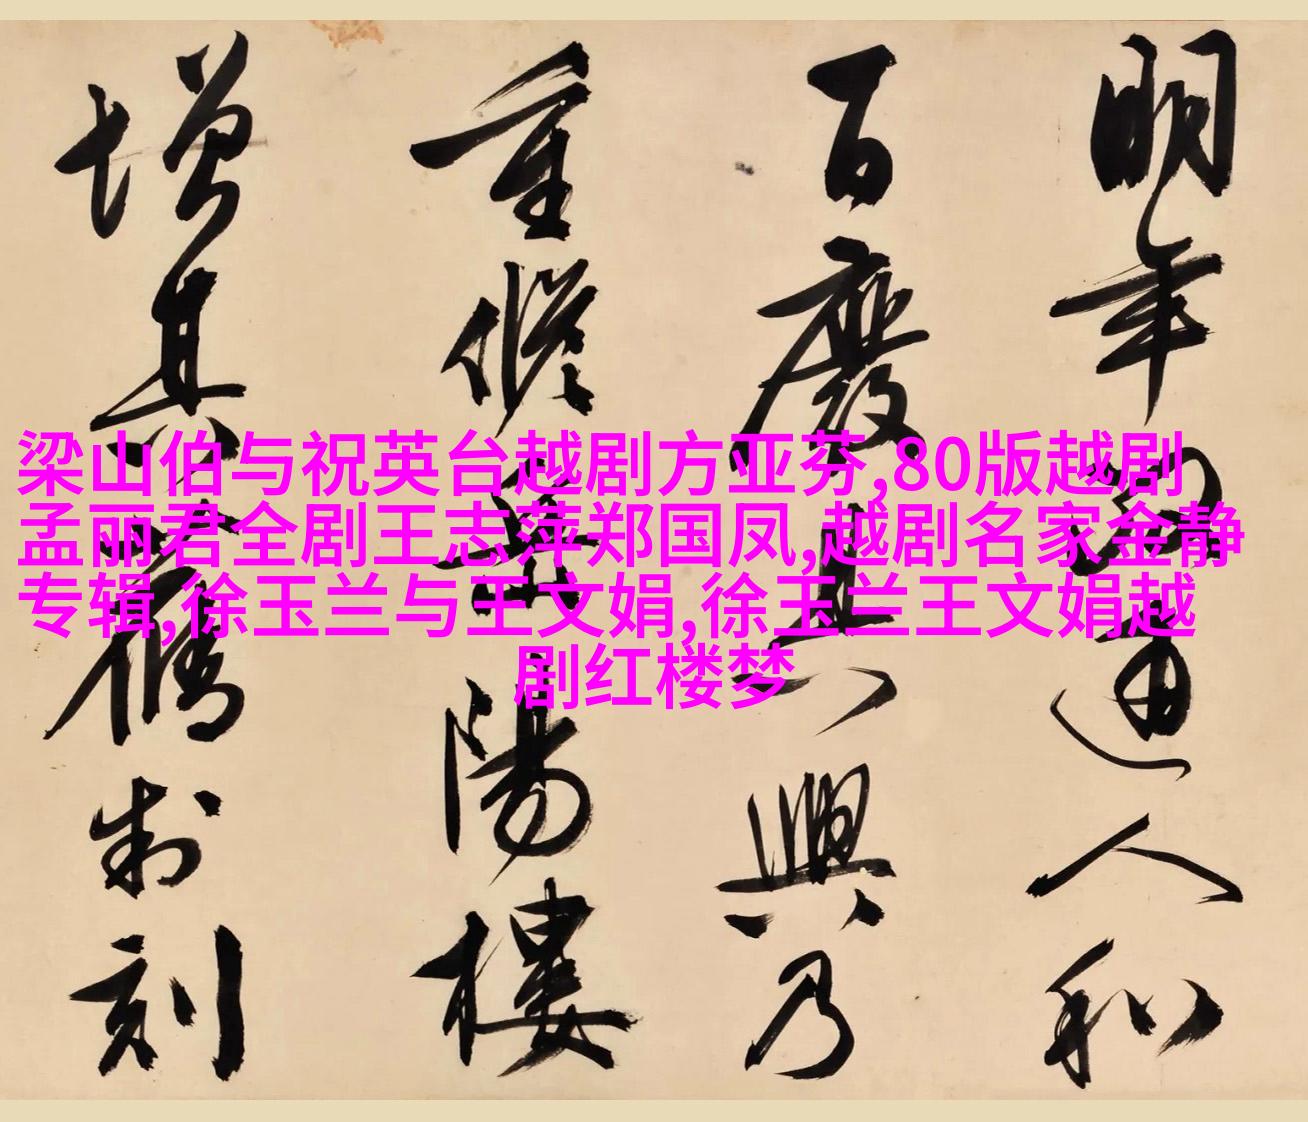 梁山伯与祝英台越剧方亚芬,80版越剧
孟丽君全剧王志萍郑国凤,越剧名家金静
专辑,徐玉兰与王文娟,徐玉兰王文娟越
剧红楼梦
明年政通人和
百廢具興乃
重脩岳陽樓
增其舊制刻